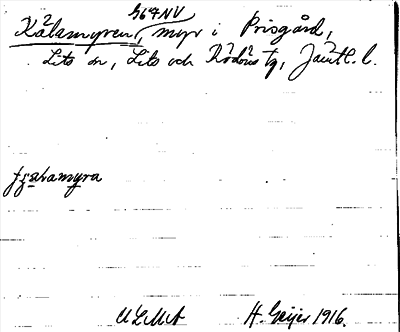 G64NV
Kälamyren, myr i Prisgård,
Lits sn, Lits och Rödöns tg, Jämtl. l.
ULMA H. Geijer 1916.